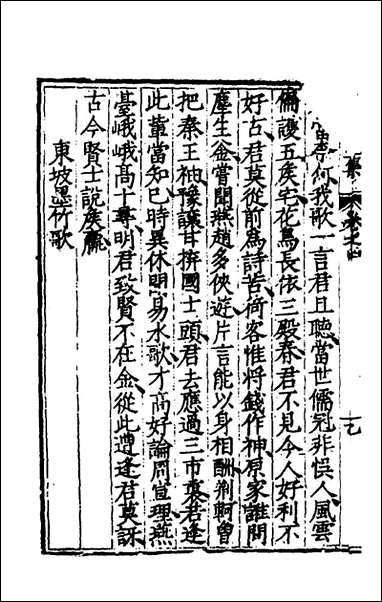 奈何我歌一言君且聽當世儒冠非悞人風雲
偏護五侯宅花鳥長依三殿春君不見今人好利不
好古君莫從前為詩苦倚客惟將錢作神原家誰問
塵生釡嘗聞燕趙多俠遊片言能以身相酬荆軻曽
把秦王袖豫讓甘拚國士頭君去應過三市裏君逢
此軰當知已時異休明易水歌才高好論周宣理燕
臺峨峨髙十尋明君致賢不在金從此遭逢君莫訝
古今賢士說侯嬴
東坡墨竹歌